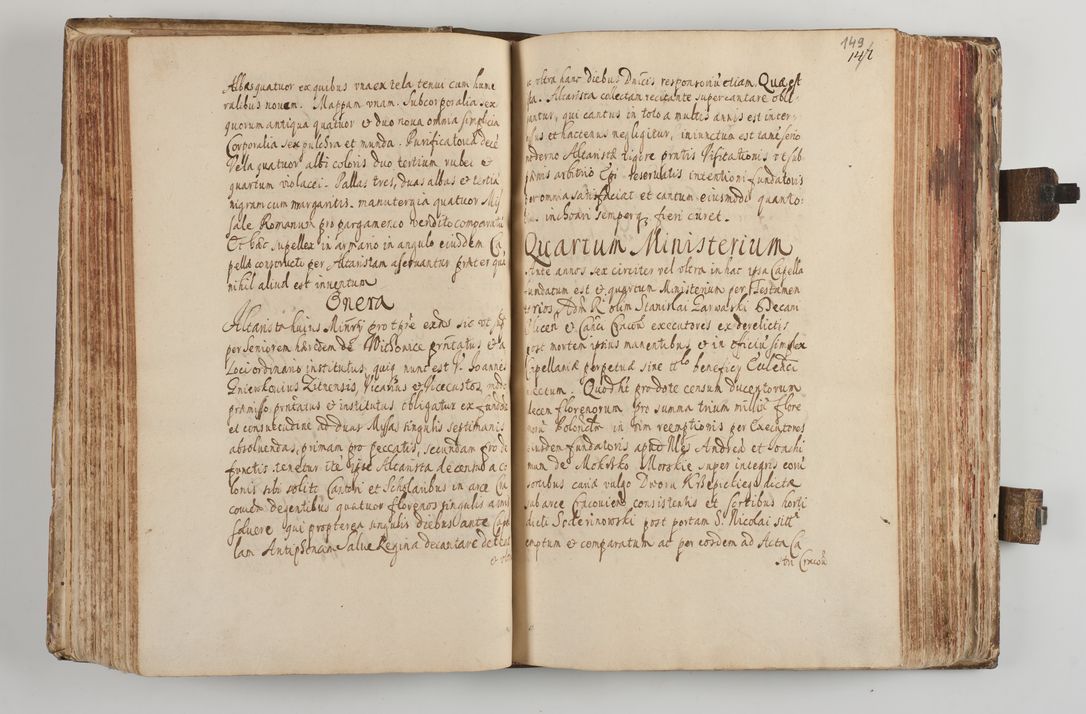 Albas quatuor ex quibus vna ex tela tenui cum hume
ralibus novem. Mappam vnam. Subcorporalia sex
quorum antiqua quatuor et duo noua omnia simplicia
Corporalia sex pulchra et munda. Purificatoria decē
Vela quatuor albi coloris duo tertium rubei et
quartum violacei. Pallas tres, duas albas et tertiā
nigram cum margaritis. manutergia quatuor Mis
sale Romanum pro pargameno vendito comparatū
Et hæc supellex in armario in angulo eiusdem Ca
pellæ constructo per Altaristam asseruantur præterquā
nihil aliud est inventum
Onera
Altarista huius Minrÿ pro tpre exns sic vt
per Seniorem hæredem de Witkowice prntatus et a
Loci ordinario institutus, quis nunc est V. Joannes
Gniewkouius Zitnensis, Vicarius et Vicecustos, modo
præmisso prntatus et institutus obligatur ex fundoe
et consuetudine ad duas Missas singulis septimanis
absoluendas, primam pro peccatis, secundam pro de
functis tenetur itē ipse Altarista de censu a co
lonis sibi solito Cantori et Scholaribus in arce Cra
couien degentibus quatuor florenos singulis annis
soluere qui propterea singulis diebus ante Cape
lam Antiphonam Salue Regina decantare debent
149
142
a vltra hanc diebus Dnicis responsoriū etiam Quæ est
ista. Altarista collectam recitante super cantare obli
gantur, qui cantus in toto a multis annis est inter
et hactenus negligitur, iniunctum est tamē
moderno Altaristæ vigore prntis Visitationis vt sub
pænis arbitrio Epi reservatis intentioni fundatoris
per omnia satisfaciat et cantum eiusmodi quanto
inchoari semperq fieri curet.
Quartum Ministerium
Ante annos sex circiter vel vltra in hac ipsa Capella
fundatum est et quartum Ministerium per Testamen
torios Adm R olim Stanislai Zarwarski Decani
Vicen et Canci Cracon executores ex derelictis
post mortem ipsius manentibus et in officiū simplex
Capellaniæ perpetuæ sine tlo beneficÿ Eccleticī
erectum. Quod ht pro dote censum ducentorum
decem florenorum pro summa trium milliū flore
norū in vim reemptionis per Executores
eiusdem fundatoris apud Mcos Andreā et Joachi
mum de Mokrsko Morskie super integris
sortibus curiæ vulgo Dwora Krzepickiego dictæ
sub arce Cracouien consistentis et sortibus horti
dicti Spiterinowski post portam S. Nicolai sitti
emptum et comparatum ac per eosdem ad Acta Ca
stri Cracoū